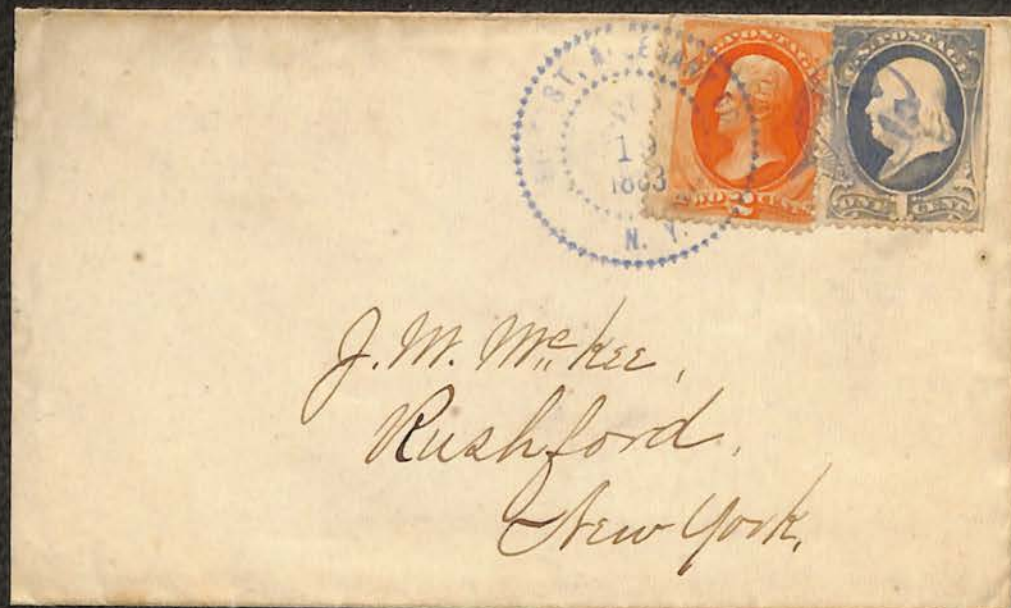 ST.
19
1883
N. Y.
U.S. POSTAGE
TWO 2 CENTS
U.S. POSTAGE
ONE 1 CENT
J. M. McKee,
Rushford,
New York,